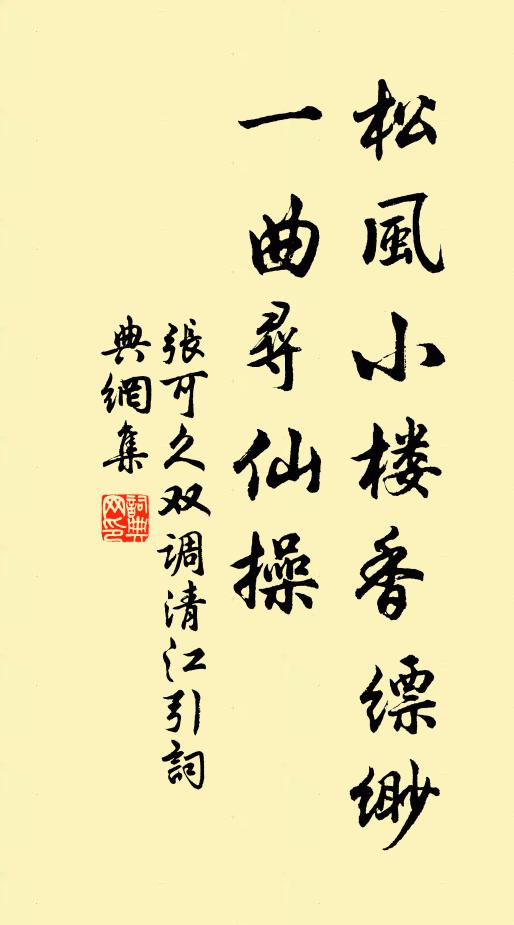 松風小楼香缥缈
一曲尋仙操
張可久双调清江引詞
典網集
詞典
网印